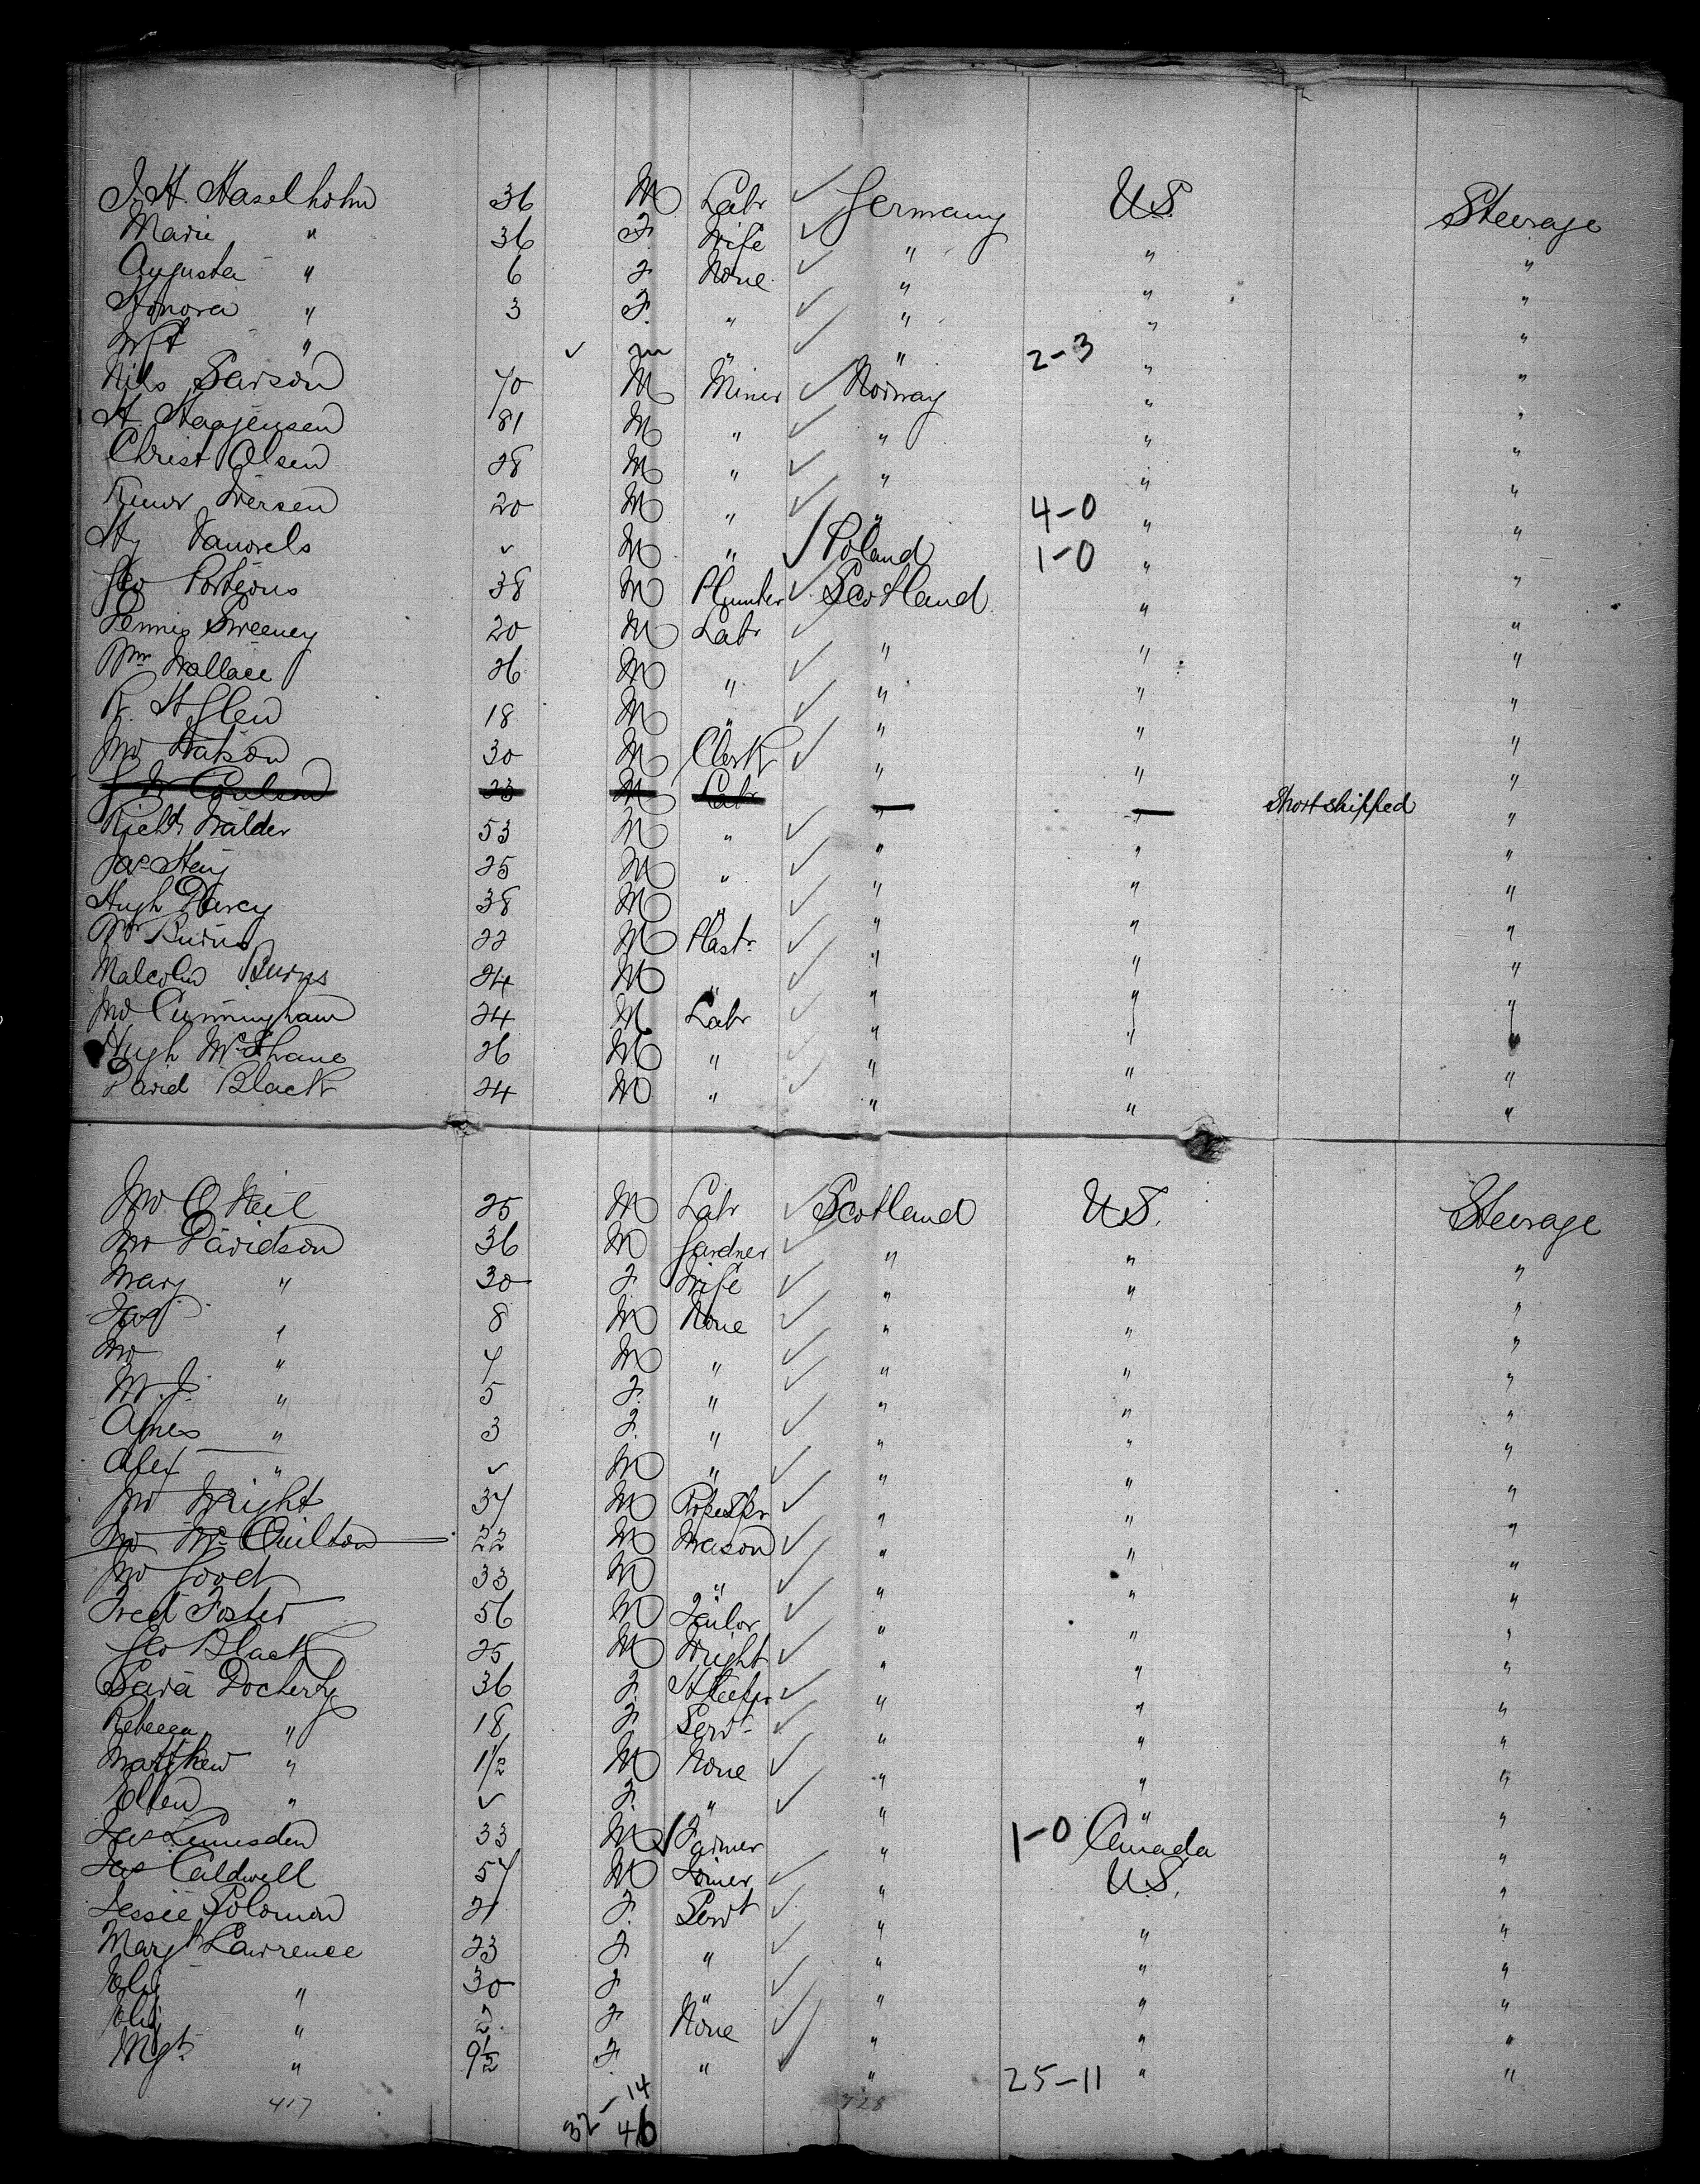 J. H. Haselhohn 36 M Labr ✓ Germany U.S. Steerage
Marie " 36 F. Wife ✓ " " "
Augusta " 6 F None ✓ " " "
Honora " 3 F. " ✓ " " "
Inft " ✓ m " ✓ " 2-3 " "
Nils 40 M Miner ✓ Norway " "
H. Haagensen 81 M " ✓ " " "
Christ Olsen 28 M " ✓ " " "
Iversen 20 M " ✓ " 4-0 " "
Hy ✓ M " ✓ Poland 1-0 " "
Geo Porteous 38 M Plumber ✓ Scotland " "
Dennis Sweeney 20 M Labr ✓ " " "
Wm Wallace 26 M " ✓ " " "
R. H Glen 18 M " ✓ " " "
Jno Watson 30 M Clerk ✓ " " "
Coulson 23 M Labr " " Short shipped "
Richd Walder 53 M " ✓ " " "
Jas 25 M " ✓ " " "
Hugh Darcy 38 M " ✓ " " "
Wm Burns 22 M Plastr ✓ " " "
Malcolm Burns 24 M " ✓ " " "
Jno Cunningham 24 M Labr ✓ " " "
Hugh McShane 26 M " ✓ " " "
David Black 24 M " ✓ " " "
Jno O Neil 25 M Labr ✓ Scotland U.S. Steerage
Jno Davidson 36 M Gardner ✓ " " "
Mary " 30 F Wife ✓ " " "
Jas " 8 M None ✓ " " "
Jno " 7 M " ✓ " " "
M. J. " 5 F. " ✓ " " "
Agnes " 3 F. " ✓ " " "
Alex " ✓ M " ✓ " " "
Jno Wright 37 M ✓ " " "
Jno McQuilton 22 M Mason ✓ " " "
Jno Good 33 M " ✓ " " "
Fred Foster 56 M Tailor ✓ " " "
Geo Black 25 M Wright ✓ " " "
Sara Docherty 36 F. H Keepr ✓ " " "
Rebecca " 18 F. Servt ✓ " " "
Matthew " 1½ M None ✓ " " "
Ellen " ✓ F. " ✓ " " "
Jas Lumsden 33 M ✓ Farmer " 1-0 Canada "
Jas Caldwell 57 M Joiner ✓ " U.S. "
Jessie Solomon 21 F. Servt ✓ " " "
Margt Lawrence 23 F " ✓ " " "
Eliz " 30 F " ✓ " " "
Eliz " 2 F None ✓ " " "
Mgt " 9½ F " ✓ " 25-11 " "
417 32-14 728
46